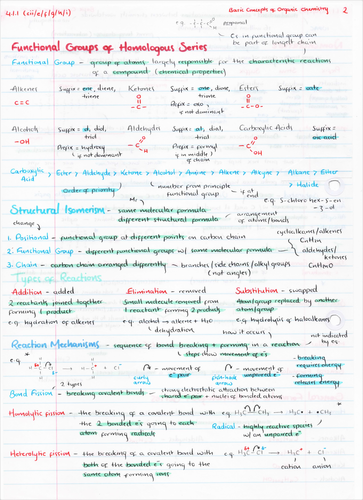 4.1.1 (cii/e/f/g/h/i) Basic Concepts of Organic Chemistry 2
propanal
Cs in functional group can be part of longest chain
Functional Groups of Homologous Series
Functional Group - group of atoms largely responsible for the characteristic reactions
of a compound (chemical properties)
Alkenes Suffix = ene, diene, triene Ketones Suffix = one, dione, trione Esters Suffix = oate
C=C Prefix = oxo if not dominant
Alcohols Suffix = ol, diol, triol Aldehydes Suffix = al, dial, trial Carboxylic Acids Suffix = oic acid
-OH Prefix = hydroxy if not dominant Prefix = formyl if in middle of chain
Carboxylic Acid > Ester > Aldehyde > Ketone > Alcohol > Amine > Alkene > Alkyne > Alkane > Ether > Halide
order of priority number from principle functional group
Structural Isomerism - same molecular formula
different structural formula arrangement of atoms/bonds
1. Positional - functional group at different points on carbon chain
2. Functional Group - different functional groups w/ same molecular formula
cycloalkanes/alkenes
aldehydes/ketones
3. Chain - carbon chain arranged differently - branches/side chains/alkyl groups
(not angles)
Types of Reactions
Addition - added Elimination - removed Substitution - swapped
2 reactants joined together small molecule removed from atom/group replaced by another
forming 1 product 1 reactant forming 2 products atom/group
e.g. hydration of alkenes e.g. alcohol → alkene + H₂O e.g. hydrolysis of haloalkanes
dehydration how it occurs not indicated by eq
Reaction Mechanisms - sequence of bond breaking + forming in a reaction
steps show movement of e⁻s
e.g. 2 types curly arrows = movement of e⁻ pair = movement of e⁻
- breaking requires energy
- forming releases energy
Bond Fission - breaking covalent bonds strong electrostatic attraction between
shared e⁻ pair + nuclei of bonded atoms
Homolytic fission - the breaking of a covalent bond with e.g. H₃C-CH₃ → H₃C• + •CH₃
the 2 bonded e⁻s going to each
atom forming radicals
Radical - highly reactive species
w/ an unpaired e⁻
Heterolytic fission - the breaking of a covalent bond with e.g. H₃C-Cl → H₃C⁺ + Cl⁻
both of the bonded e⁻s going to the cation anion
same atom forming ions